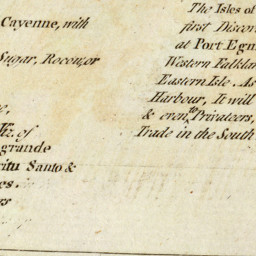 Cayenne, with
Sugar, Rocou, or
of
grande
Santo &
The Isles of
first Discov
at Port Egm
Western Falklan
Eastern Isle. As
Harbour, It will
& even to Privateers,
Trade in the South